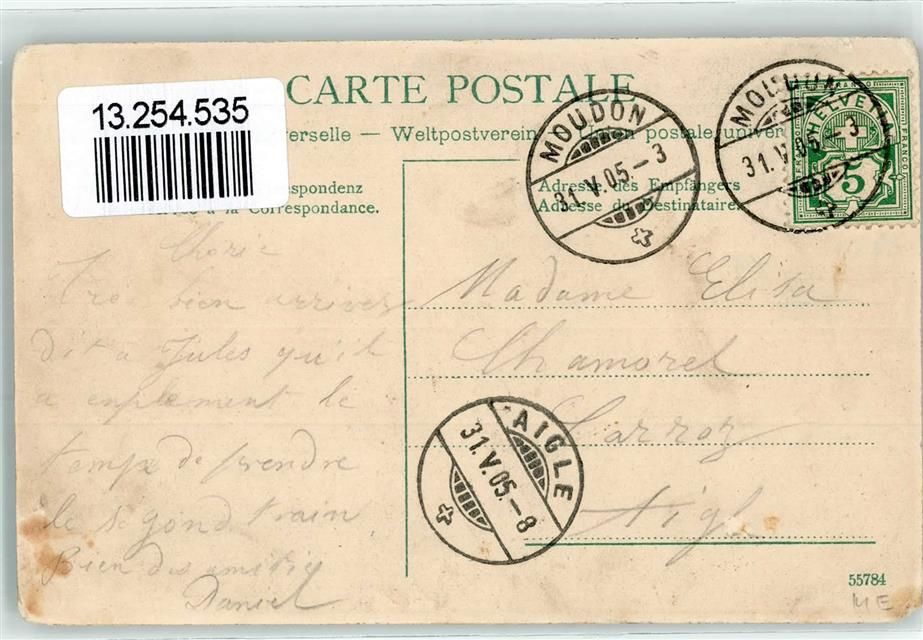 13.254.535
CARTE POSTALE
verselle — Weltpostverein — Union postale univer
respondenz
à la Correspondance.
Adresse des Empfängers
Adresse du Destinataire.
MOUDON
31.V.05.–3
MOUDON
31.V.05.–3
HELVETIA
FRANCO
5
bien arrivés
dit a Jules qu'il
a le
temps de prendre
le segond train
Bien des amitiés
Daniel
Madame Elisa
Chamorel
Aigl
AIGLE
31.V.05.–8
55784
ME